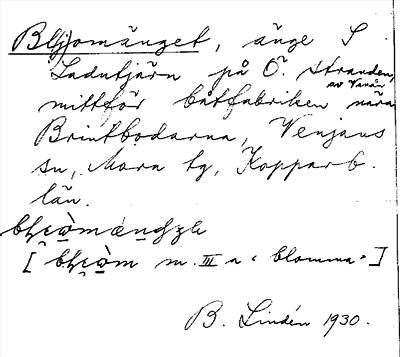 Bl(j)omänget, änge S
Ladutjärn på Ö. stranden
av Vanån
mittför båtfabriken nära
Brintbodarna, Venjans
sn, Mora tg, Kopparb.
län.
[ m. III a "blomma" ]
B. Lindén 1930.